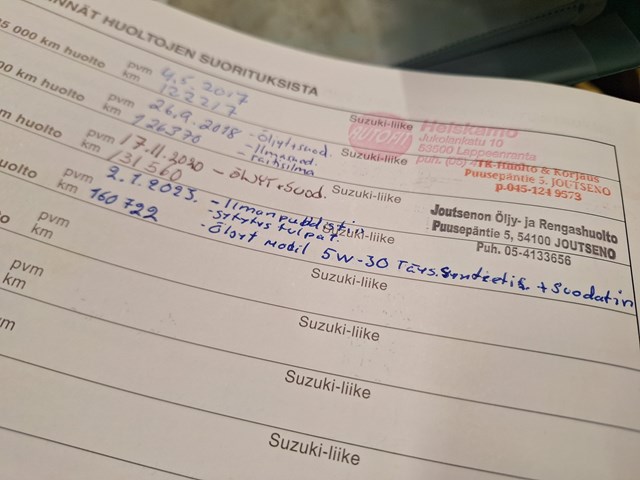 NNÄT HUOLTOJEN SUORITUKSISTA
5 000 km huolto
pvm 4.5.2017
km 122217
Suzuki-liike
Helskamo
Jukolankatu 10
53500 Lappeenranta
puh. (05) 4
00 km huolto
pvm 26.9.2018 - Öljyt+suod.
km 126370 - Ilmansuod.
- raitisilma
Suzuki-liike
TK-Huolto & Korjaus
Puusepäntie 5, JOUTSENO
p.045-124 9573
m huolto
pvm 17.11.2020 - ÖLJYT+suod.
km 131560
Suzuki-liike
Joutsenon Öljy- ja Rengashuolto
Puusepäntie 5, 54100 JOUTSENO
Puh. 05-4133656
uolto
pvm 2.1.2023. - Ilmanpuhdistin
km 160722 - Sytytystulpat.
- Öljyt Mobil 5W-30 Täys.Synteetis. + Suodatin
Suzuki-liike
to
pvm
km
Suzuki-liike
o
pvm
km
Suzuki-liike
pvm
km
Suzuki-liike
m
pvm
km
Suzuki-liike